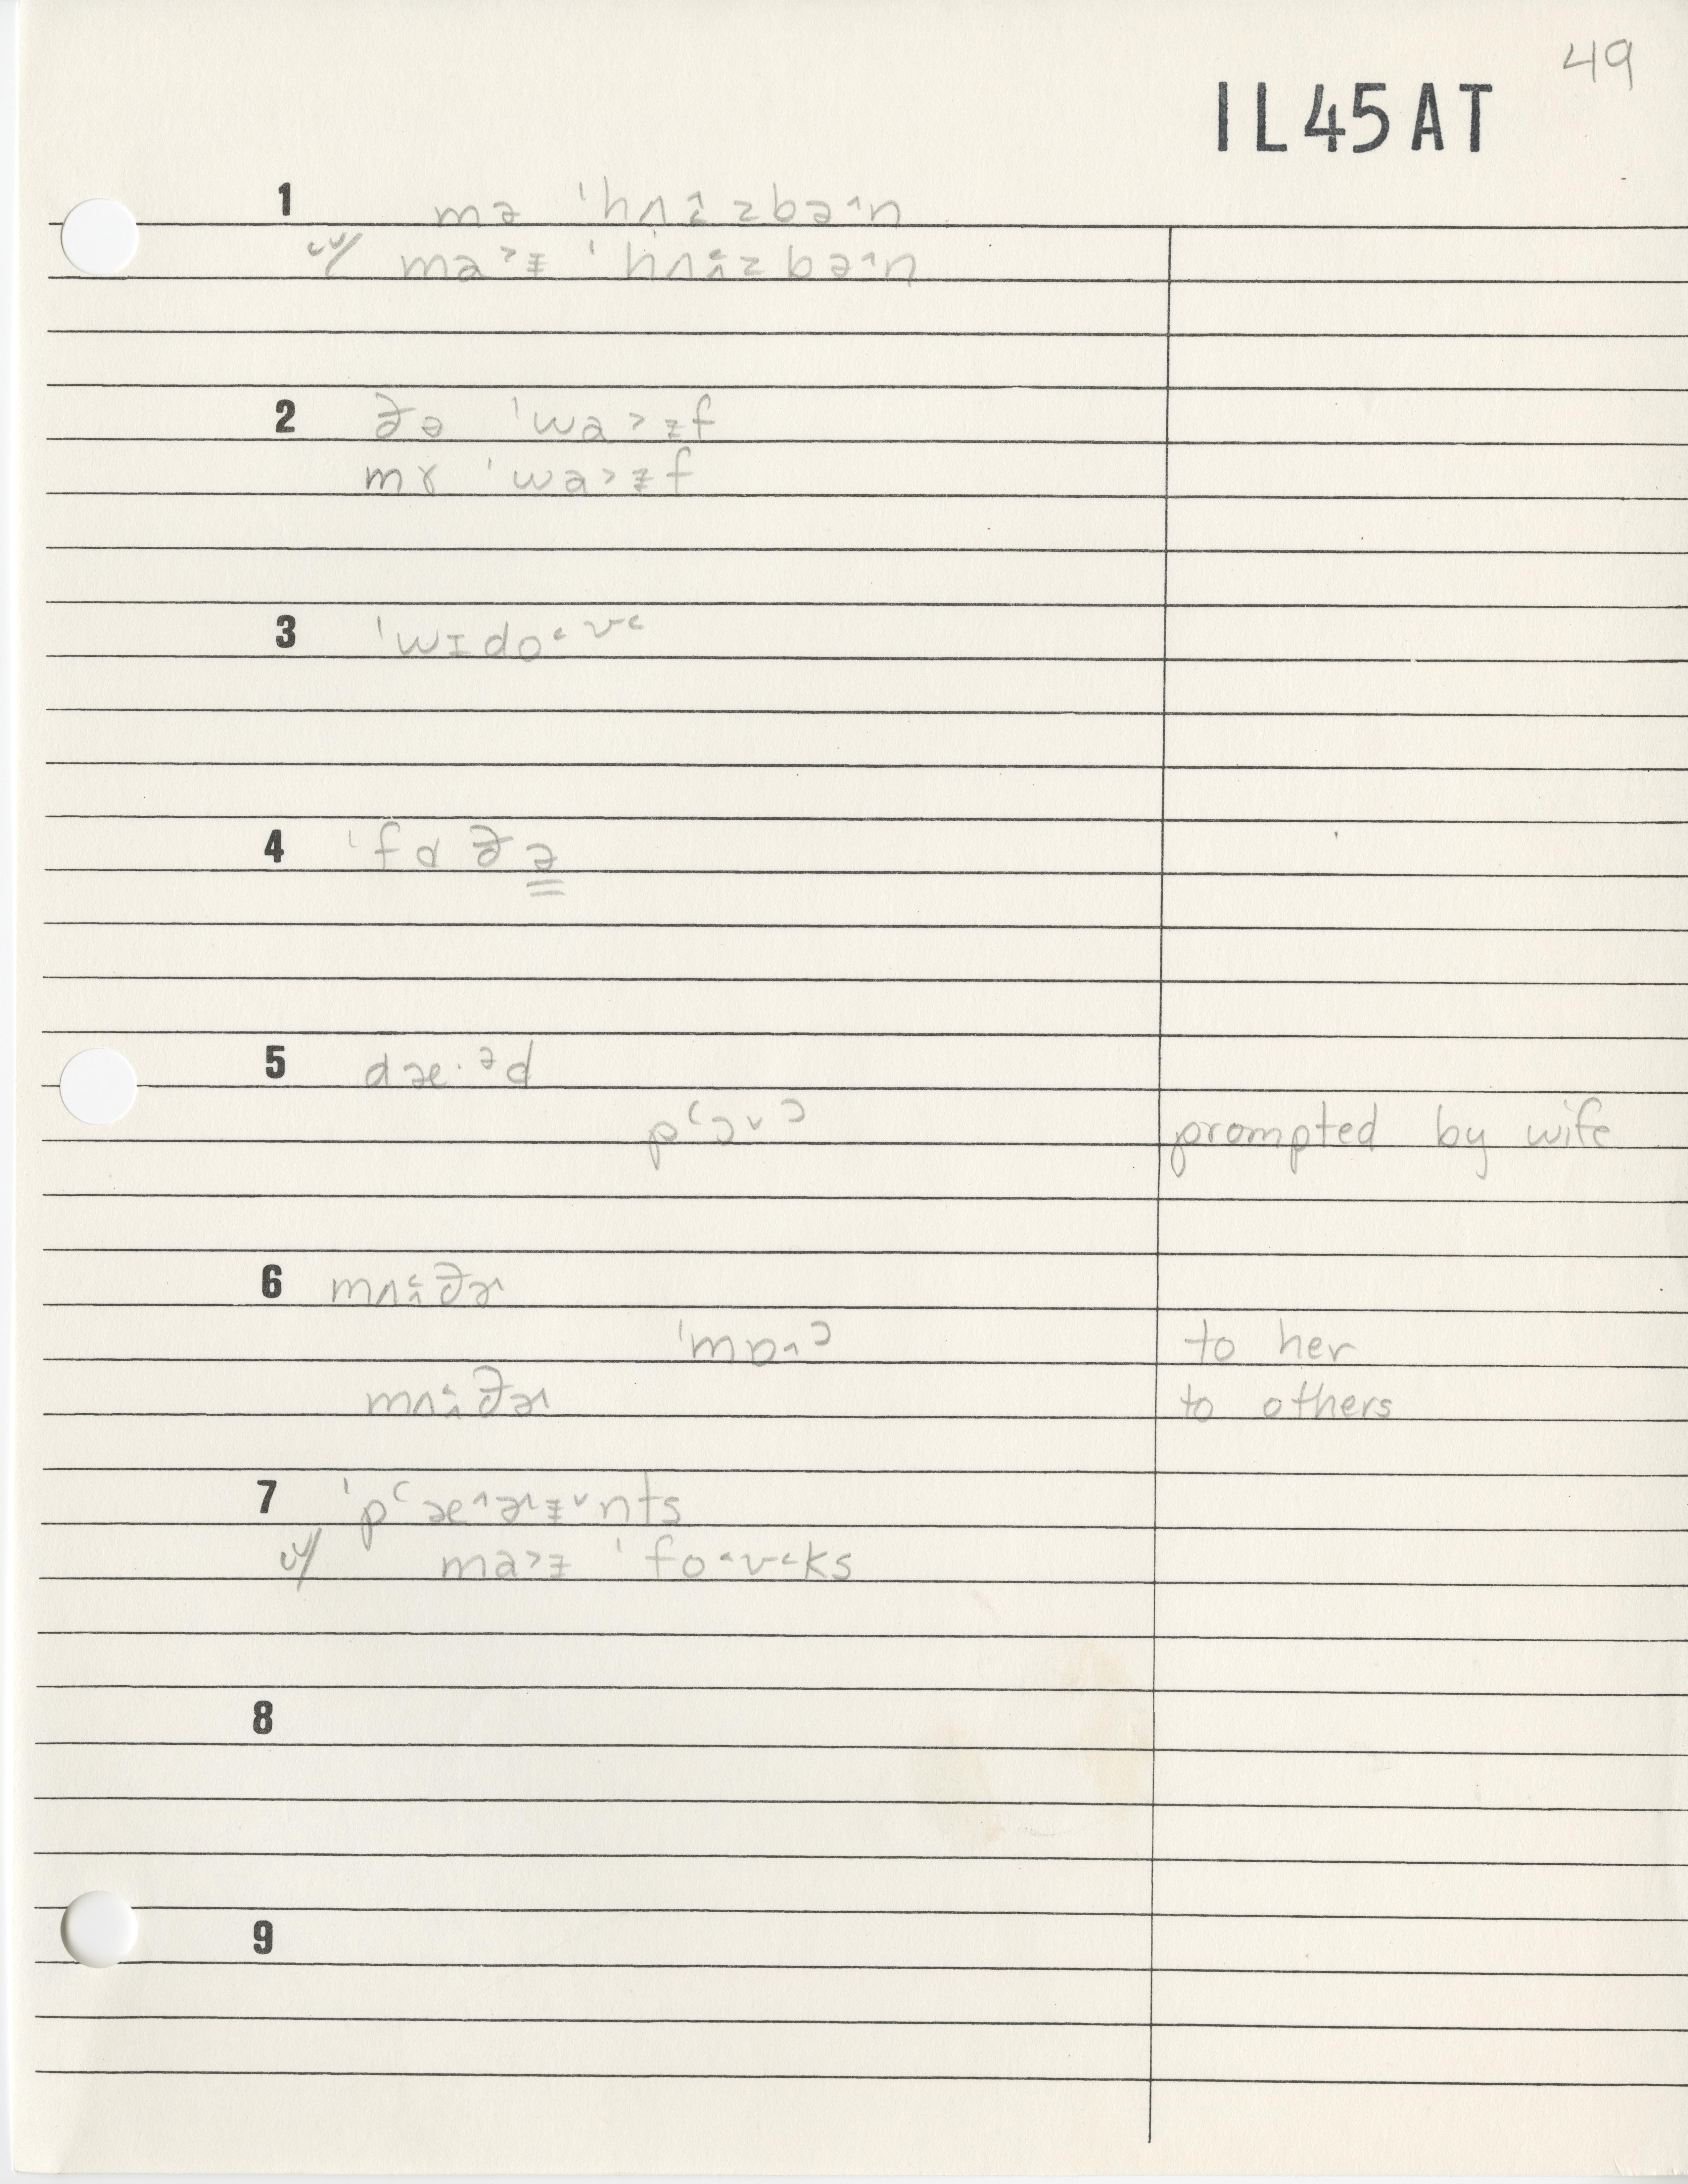 49
IL45AT
1 mə ˈhʌɨ̂zbəˆn
cv/ ma˃ᵻ ˈhʌɨ̂zbəˆn
2 ðə ˈwa˃ᵻf
mɤ ˈwa˃ᵻf
3 ˈwɪdo˂ʊ˂
4 ˈfɑðə̳
5 dæ·ᵊd
pʻɔ˅ɔ prompted by wife
6 mʌɨ̂ðɚ
ˈmɒ˄ɔ to her
mʌɨ̂ðɚ to others
7 ˈpʻæ˄ɚᵻ˅nts
cv/ ma˃ᵻ ˈfo˂ʊ˂ks
8
9